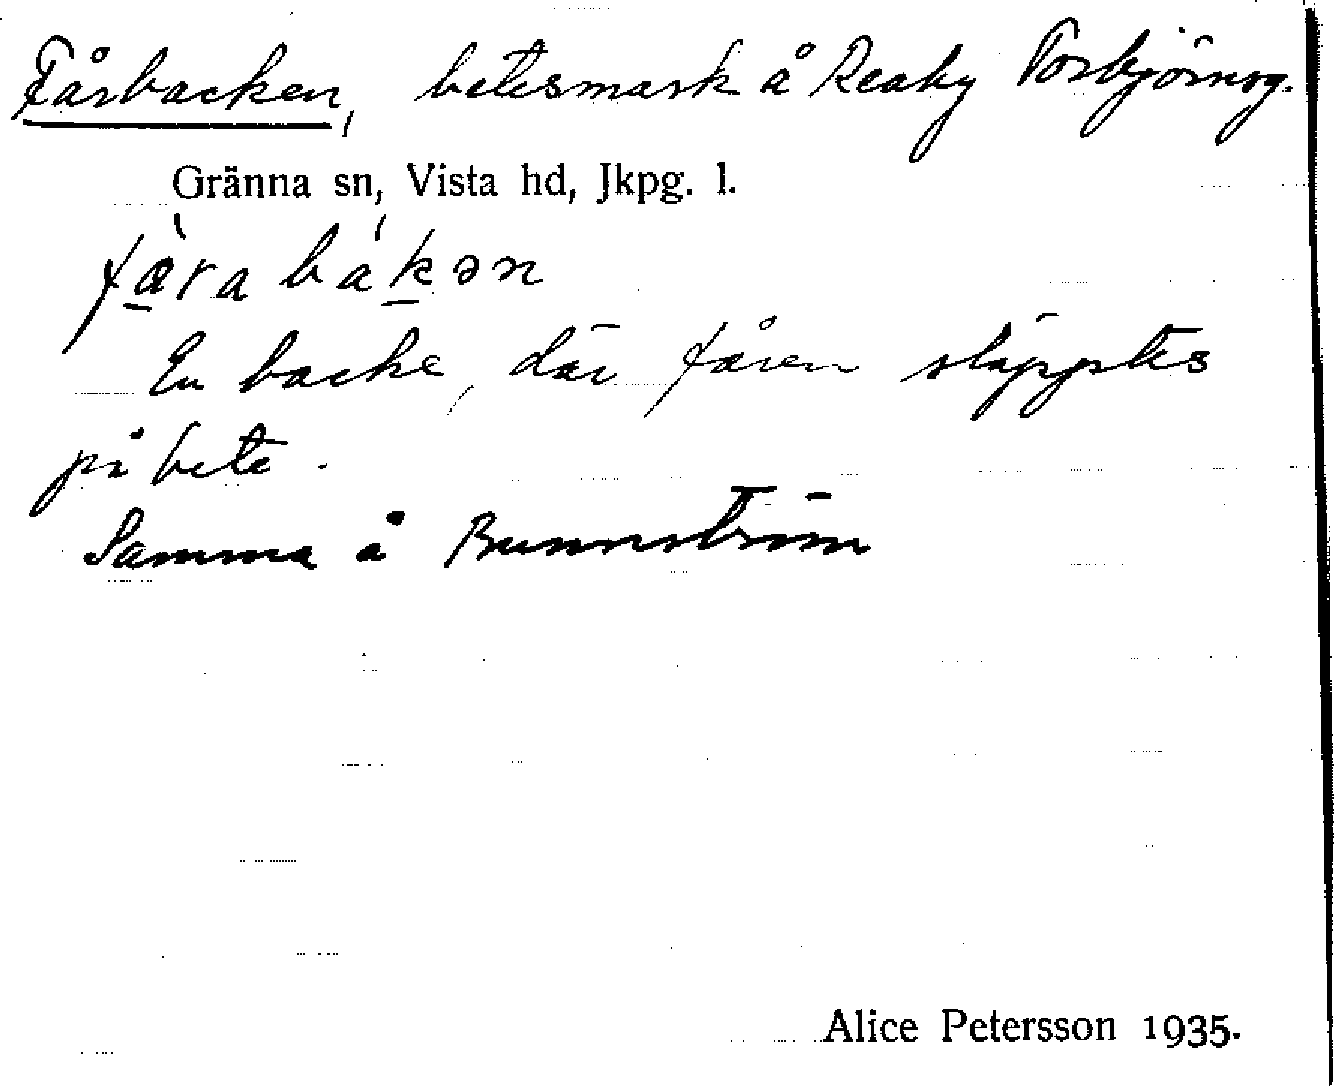 Fårbacken, betesmark å Reaby Torbjörnsg.
Gränna sn, Vista hd, Jkpg. l.
fà̱ra báḵən
En backe, där fåren släpptes
på bete.
Samma å Brunnström
Alice Petersson 1935.